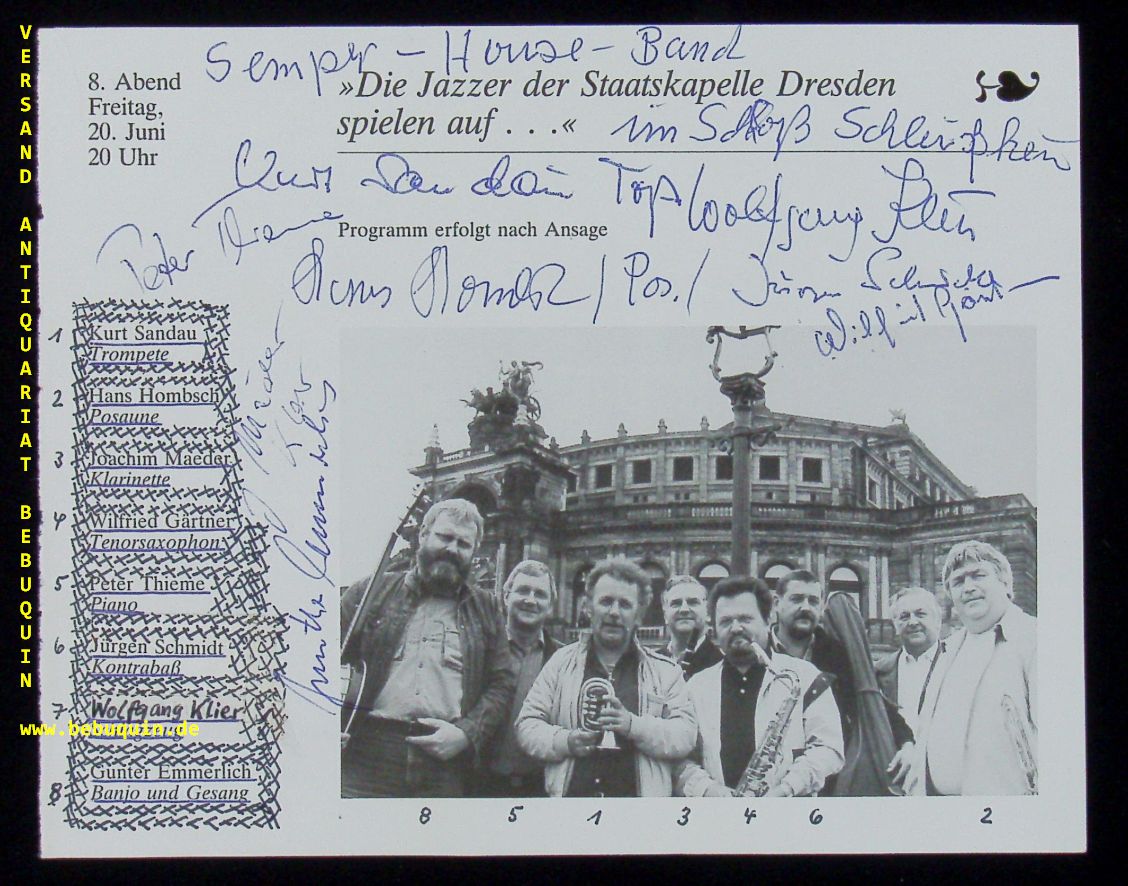 VERSAND ANTIQUARIAT BEBUQUIN
Semper-House-Band
8. Abend
Freitag,
20. Juni
20 Uhr
»Die Jazzer der Staatskapelle Dresden
spielen auf . . .«
im Schloß
Kurt Sandau Top/Wolfgang Klier
Peter Thieme
Programm erfolgt nach Ansage
Hans Hombsch / Pos. / Jürgen Schmidt
Wilfried
1 Kurt Sandau
Trompete
2 Hans Hombsch
Posaune
3 Joachim Maeder
Klarinette
4 Wilfried Gärtner
Tenorsaxophon
5 Peter Thieme
Piano
6 Jürgen Schmidt
Kontrabaß
7 Wolfgang Klier
www.bebuquin.de
8 Gunter Emmerlich
Banjo und Gesang
Maeder
Klar
Gunther Emmerlich
8 5 1 3 4 6 2